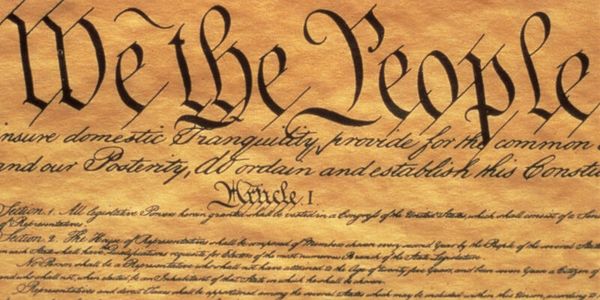 We the People
insure domestic Tranquility, provide for the common
and our Posterity, do ordain and establish this Constitu
Article I.
Section. 1. All legislative Powers herein granted shall be vested in a Congress of the United States, which shall consist of a Sen
of Representatives.
Section. 2. The House of Representatives shall be composed of Members chosen every second Year by the People of the several States
in each State shall have the Qualifications requisite for Electors of the most numerous Branch of the State Legislature.
No Person shall be a Representative who shall not have attained to the Age of twenty five Years, and been seven Years a Citizen of
and who shall not, when elected, be an Inhabitant of that State in which he shall be chosen.
Representatives and direct Taxes shall be apportioned among the several States which may be included within this Union, according to